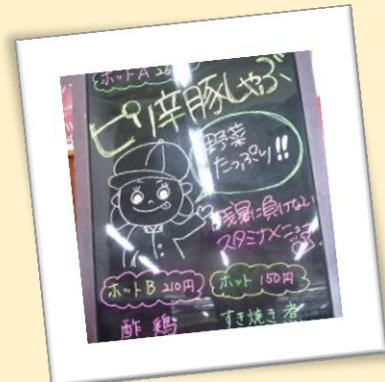 ホットA
ピリ辛豚しゃぶ
野菜
たっぷり!!
残暑に負けない
スタミナメニュー
ホットB 210円
酢鶏
ホット 150円
すき焼き煮